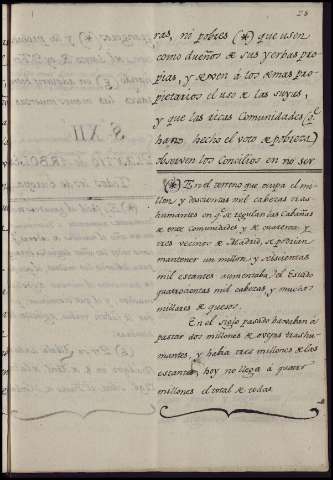 25
ras, ni pobres (*) que usen
como dueños de sus yerbas pro
pias, y dexen á los demas pro-
pietarios el uso de las suyas,
y que las ricas Comunidades (q.e
han hecho el voto de pobreza)
observen los Concilios en no ser
(*) En el terreno que ocupa el mi-
llon y doscientas mil cabezas tras-
humantes en q.e se regulan las Cabañas
de once comunidades y de quarenta y
tres vecinos de Madrid, se podian
mantener un millon y seiscientas
mil estantes aumentaba el Estado
quatrocientas mil cabezas, y muchos
millares de quesos.
En el siglo pasado baxaban á
pastar dos millones de ovejas trashu-
mantes, y habia tres millones de las
estantes, hoy no llega á quatro
millones el total de todas.